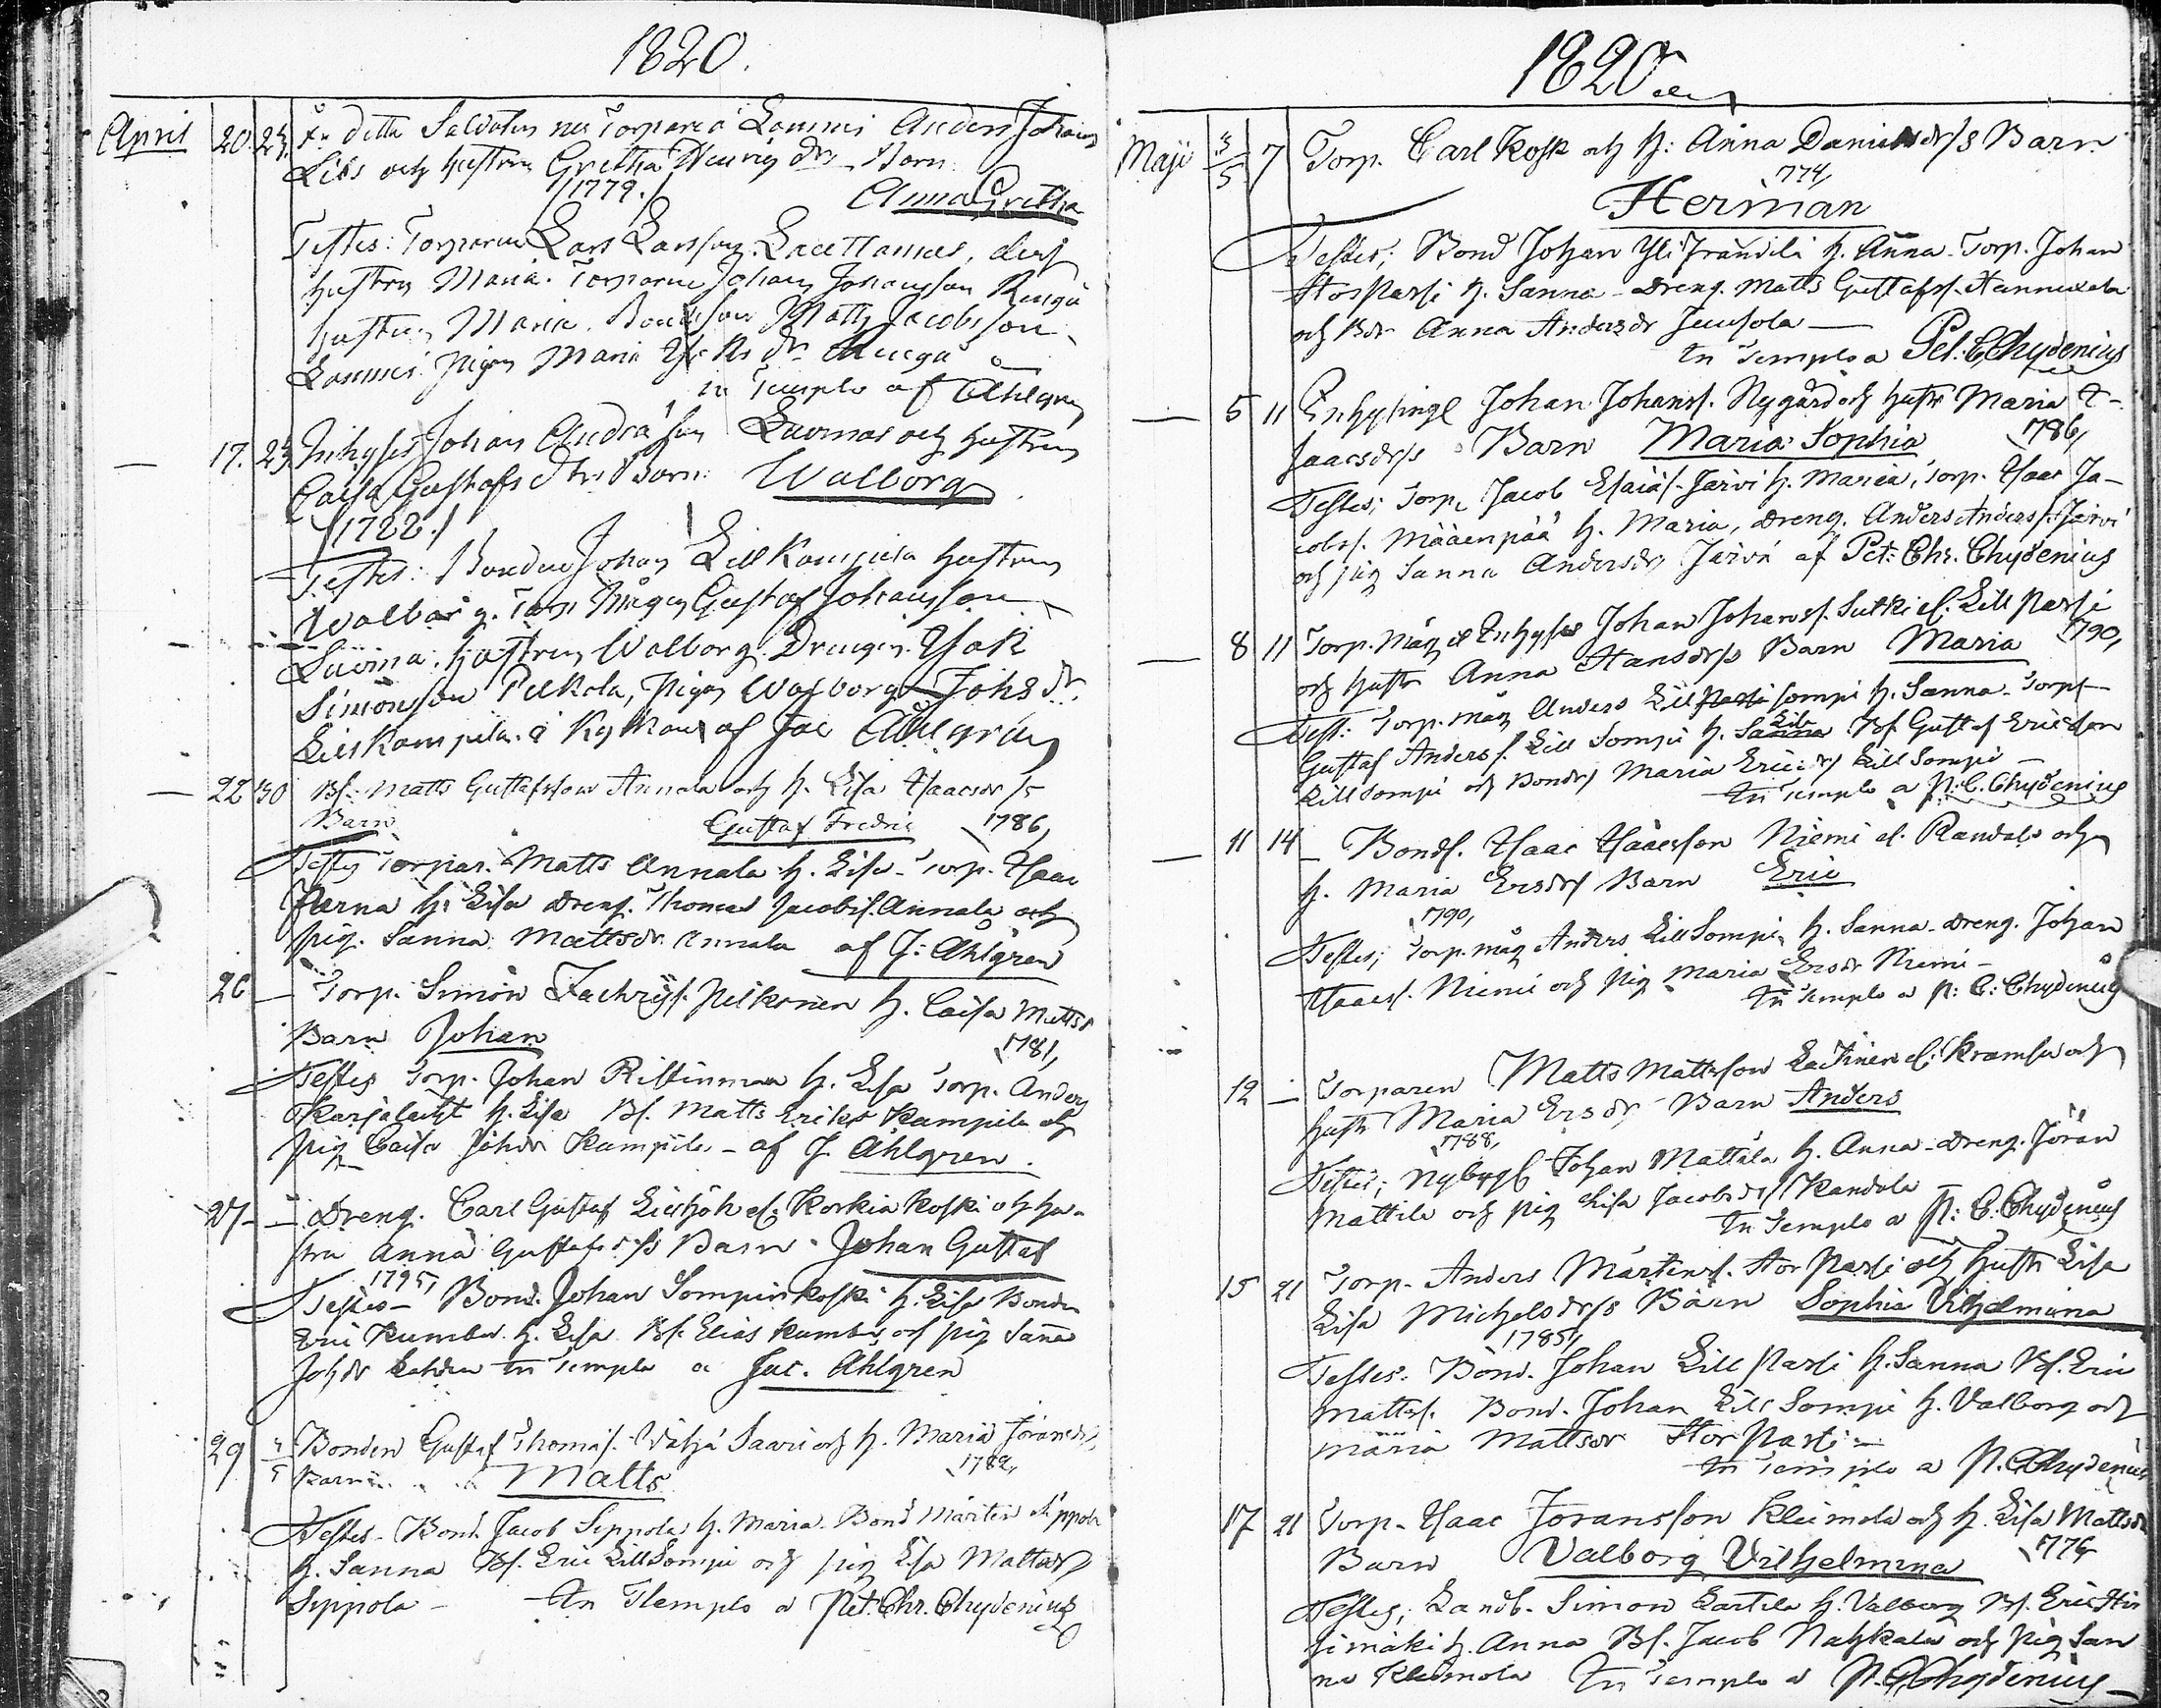 1820.
April 20. 23. Fr detta Soldaten nu Torparen å Lammi Anders Johans
Liss och hustrun Gretha Henrigsdrs Barn
/1779./ Anna Gretha
Testes: Torparen Lars Larsson, dess
hustru Maria. Torparen Johan Johansson
hustru Maria. Bondeson Matts Jacobsson
Lammi. Pigan Maria
in Templo af Ahlgren
— 17. 23. Inhyses Johan Andrä son och hustrun
Caisa Gustafs dtrs Barn: Walborg
/1788./
Testes: Bonden Johan LillKampila hustrun
Walborg. Torp Mågen Gustaf Johansson
hustrun Walborg. Drengen Isak
Simonson Pelkola, Pigan Walborg Johs dr.
LillKampila. af Jac Ahlgren
— 22 30 Bs. Matts Gustafsson Annala och h. Lisa Isaacsdrs
Barn Gustaf Fredric 1786,
Testes Torpar. Matts Annala h. Lisa - Torp. Isaac
h. Lisa Dreng. Thomas Jacobss. Annala och
pig. Sanna Mattsdr Annala af J: Ahlgren
26 — Torp. Simon Zachriss. Pelkonen h. Caisa Mattsd
Barn Johan 1781,
Testes Torp. Johan Ristinmaa h. Lisa Torp. Anders
Karjalaist h. Lisa Bs. Matts Erikss Kampila och
pig Caisa Johdr Kampila - af J Ahlgren.
27 - — Dreng. Carl Gustaf el. Korkiakoski och hu-
stru Anna Gustafsdrs Barn - Johan Gustaf
1795,
Testes - Bond. Johan Sompinkoski h. Lisa Bonden
Eric h. Lisa Bs. Elias och pig Sanna
Johdr In Templo a Jac. Ahlgren
29 4/5 Bonden Gustaf Thomas. Wähä Saari och h. Maria Göransdr,
Barn Matts 1782,
Testes - Bond. Jacob Seppola h. Maria - Bond Mårten Seppola
h. Sanna Bs. Eric LillSompi och pig Lisa Mattsdr
Seppola - In Templo a Pet: Chr. Chydenius
1820
Maji 3/5 7 Torp. Carl Kosk och h: Anna Danielsdrs Barn
774,
Herman
Testes; Bond Johan Yli h. Anna - Torp. Johan
StorPassi h. Sanna - Dreng. Matts Gustafss. Hannuxela
och Bdr Anna Andersdr Jussola —
In Templo a Pet: C Chydenius
— 5 11 Inhysingl Johan Johanss. Nygård och hustr Maria
Isaacsdrs Barn Maria Sophia 1786,
Testes; Torp. Jacob Esaiass. Järvi h. Maria, Torp. Isaac Ja-
cobss. Määenpää h. Maria, Dreng. Anders Anderss. Järvi
och pig Sanna Andersdr Järvi af Pet: Chr. Chydenius
— 8 11 Torp. måg el Inhyses Johan Johanss. Sutki el. LillPassi
och hustr Anna Hansdrs Barn Maria 1790,
Test: Torp. måg Anders Lill Sompi h. Sanna - Torp
Gustaf Anderss. Lill Sompi h. Bs. Gustaf Ericsson
LillSompi och Bondrs Maria Ericsdr LillSompi —
In Templo a P: C. Chydenius
— 11 14 — Bonds. Isaac Isaacsson Niemi el. Randala och
h. Maria Ersdrs Barn Eric
1790,
Testes; Torp. måg Anders LillSompi, h. Sanna - Dreng. Johan
Isaacs. Niemi och pig Maria Ersdr Niemi —
In Templo a P: C: Chydenius
12 — Torparen Matts Mattsson el: Kramsu och
hustr Maria Ersdr Barn Anders
1788,
Testes; Nybygg Johan Mattila h. Anna - Dreng. Jöran
Mattila och pig Lisa Jacobsdr Randala —
In Templo a P: C. Chydenius
15 21 Torp. Anders Mårtenss. Stor Passi och hustr Lisa
Lisa Michelsdrs Barn Sophia Vilhelmina
1785,
Testes: Bond. Johan Lill Passi h. Sanna Bs. Eric
Mattss. Bond. Johan Lill Sompi h. Valborg och
Maria Mattsdr Stor Passi —
In Templo a P. C Chydenius
17 21 Torp. Isaac Joransson Kleimola och h. Lisa Mattsdr
Barn Valborg Vilhelmina 1776
Testes; Landb. Simon h. Valborg Bs. Eric Hir
simäki h. Anna Bs. Jacob och pig San
na Kleimola In Templo a P. C Chydenius